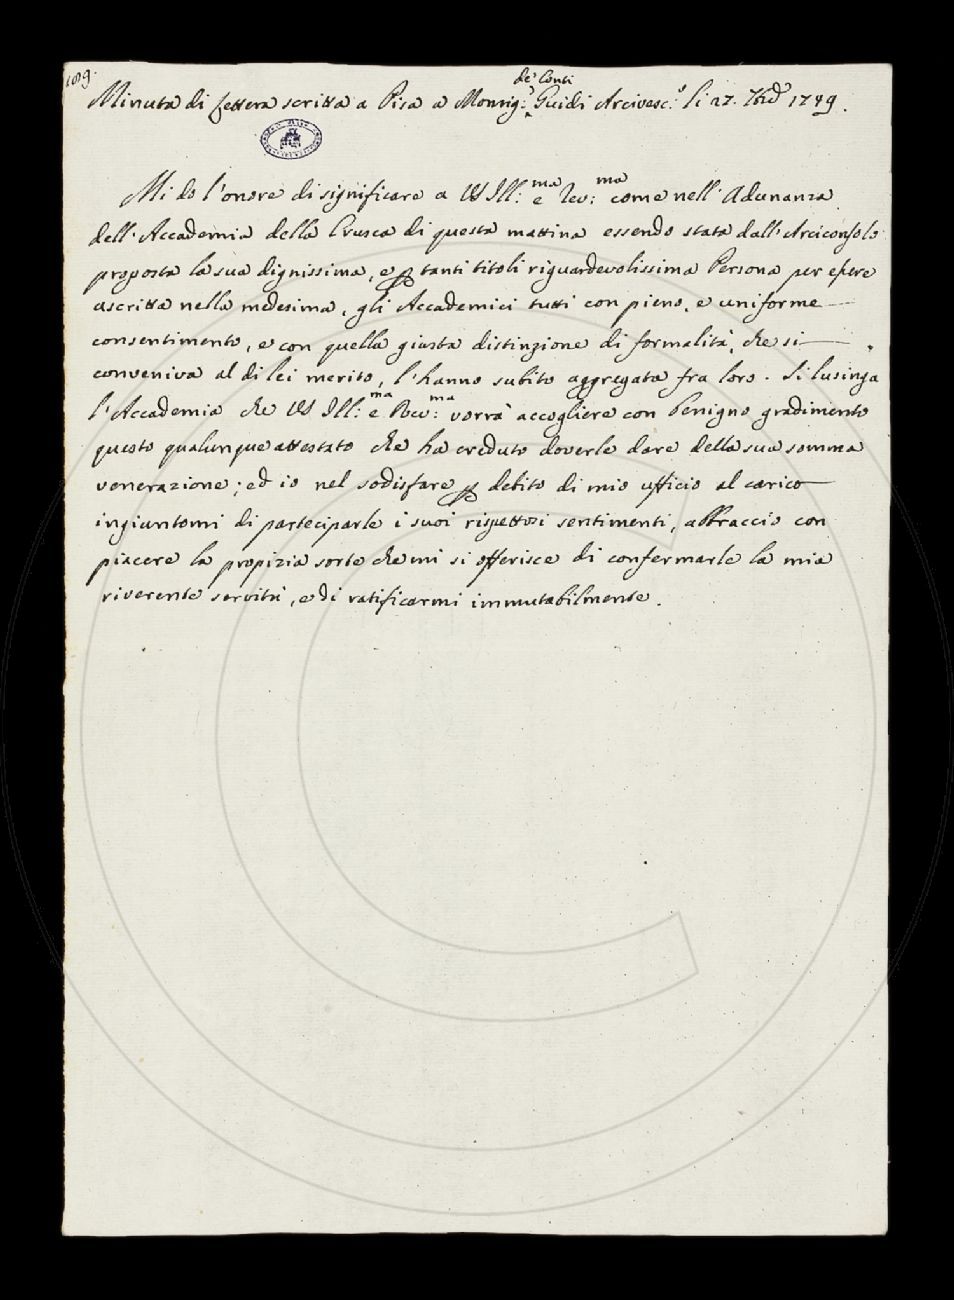 Minuta di Lettera scritta a Pisa a Monsig.r de' Conti Guidi Arcivesc.o li 27. 1749.
Mi do l'onore di significare a VS Ill:ma e Rev:ma come nell'Adunanza
dell'Accademia della Crusca di questa mattina essendo stata dall'Arciconsolo
proposta la sua dignissima, e p tanti titoli riguardevolissima Persona per essere
ascritta nella medesima, gli Accademici tutti con pieno, e uniforme
consentimento, e con quella giusta distinzione di formalità, che si
conveniva al di lei merito, l'hanno subito aggregata fra loro. Si lusinga
l'Accademia che VS Ill:ma e Rev:ma vorrà accogliere con benigno gradimento
questo qualunque attestato che ha creduto doverle dare della sua somma
venerazione; ed io nel sodisfare p debito di mio ufficio al carico
ingiuntomi di parteciparle i suoi rispettosi sentimenti, abbraccio con
piacere la propizia sorte che mi si offerisce di confermarle la mia
riverente servitù, e di ratificarmi immutabilmente.